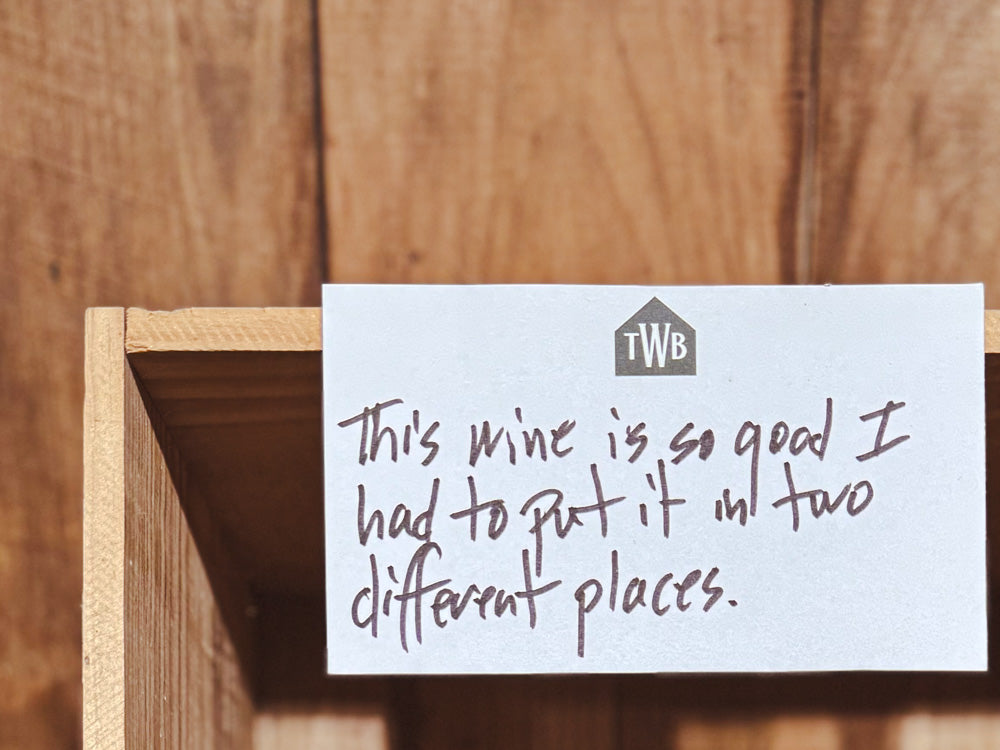 TWB
This wine is so good I
had to put it in two
different places.